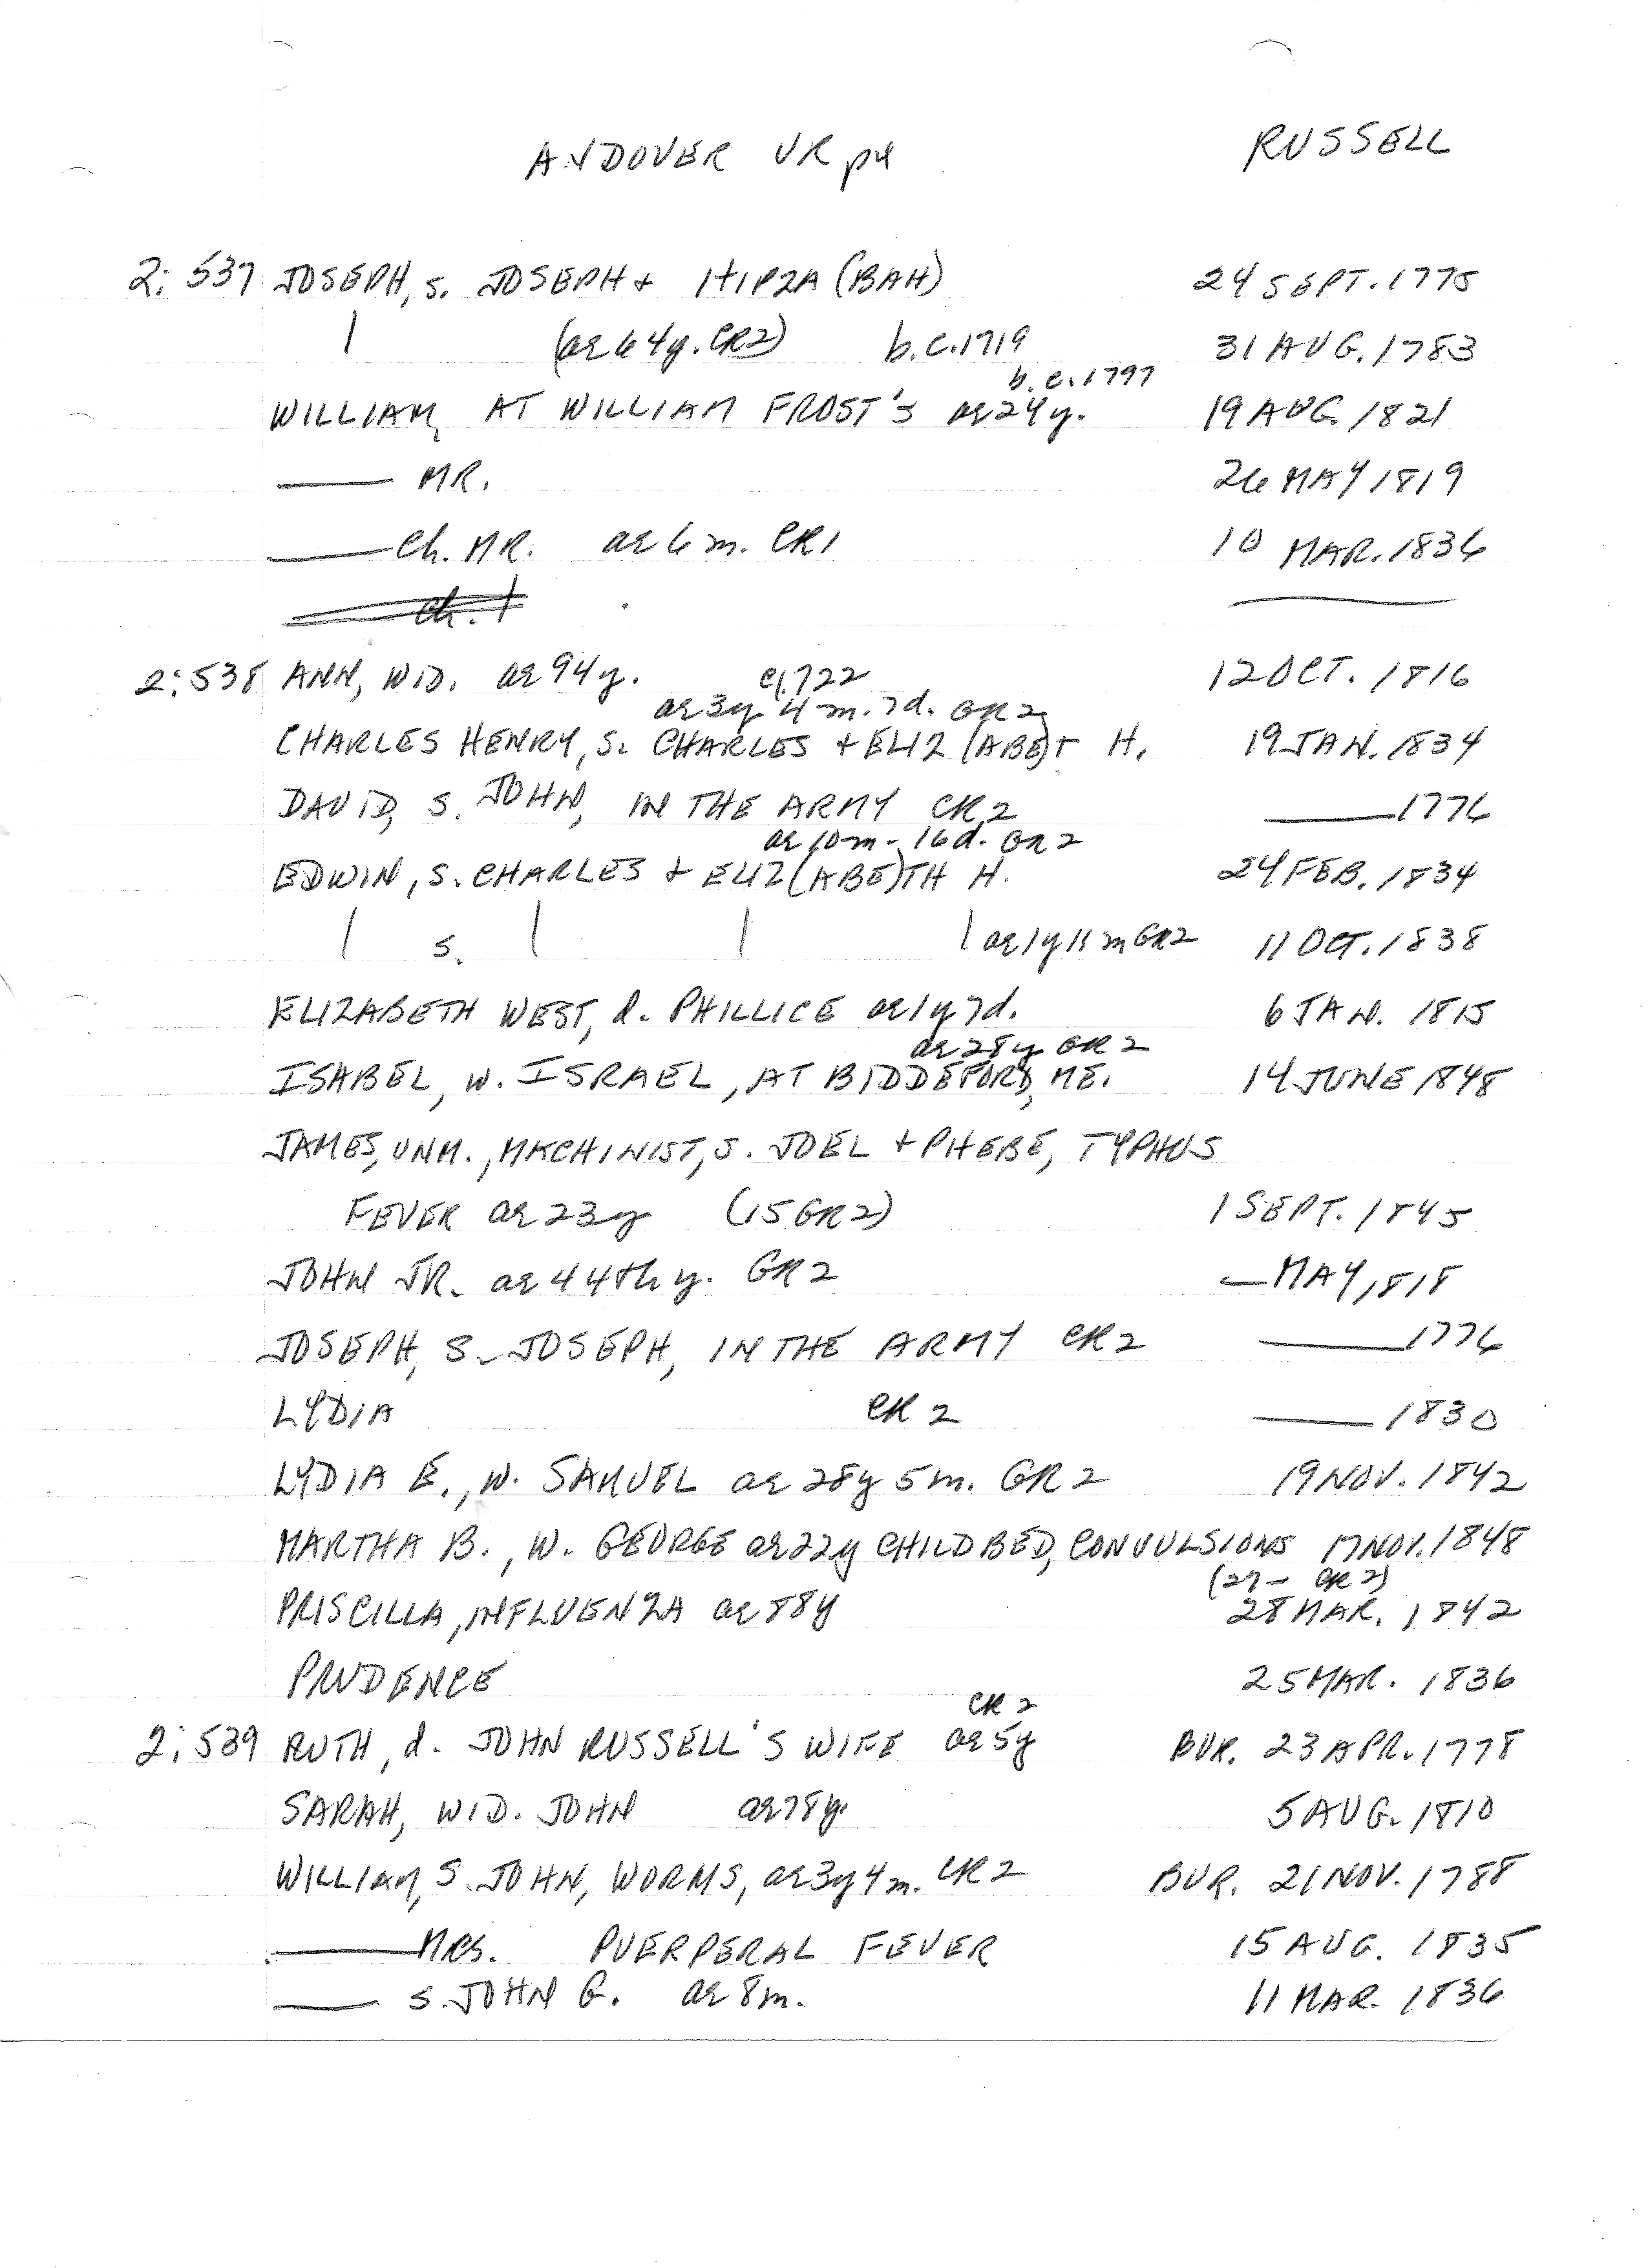 ANDOVER VR p4 RUSSELL
2:537 JOSEPH, s. JOSEPH + HIPZA (BAH) 24 SEPT. 1775
| (ae 64y. CR2) b.c. 1719 31 AUG. 1783
b.c. 1797
WILLIAM, AT WILLIAM FROST'S ae 24y. 19 AUG. 1821
—— MR. 26 MAY 1819
—— Ch. MR. ae 6 m. CR1 10 MAR. 1836
—— Ch. + ——
2:538 ANN, WID. ae 94y. c1722 12 OCT. 1816
ae 3y 4 m. 7d. GR2
CHARLES HENRY, S. CHARLES + ELIZ (ABE)T H. 19 JAN. 1834
DAVID, S. JOHN, IN THE ARMY CR2 —— 1776
ae 10m - 16d. GR2
EDWIN, S. CHARLES + ELIZ(ABE)TH H. 24 FEB. 1834
| s. | | | ae 1y 11 m GR2 11 OCT. 1838
ELIZABETH WEST, d. PHILLICE ae 1y 7d. 6 JAN. 1815
ae 28y GR2
ISABEL, W. ISRAEL, AT BIDDEFORD, ME. 14 JUNE 1848
JAMES, UNM., MACHINIST, S. JOEL + PHEBE, TYPHUS
FEVER ae 23y (15 GR2) 1 SEPT. 1845
JOHN JR. ae 44th y. GR2 — MAY, 1818
JOSEPH, S. JOSEPH, IN THE ARMY CR2 —— 1776
LYDIA CR2 —— 1830
LYDIA E., W. SAMUEL ae 28y 5m. GR2 19 NOV. 1842
MARTHA B., W. GEORGE ae 22y CHILDBED, CONVULSIONS 17 NOV. 1848
(27 - CR2)
PRISCILLA, INFLUENZA ae 88y 28 MAR. 1842
PRUDENCE 25 MAR. 1836
CR2
2:539 RUTH, d. JOHN RUSSELL'S WIFE ae 5y BUR. 23 APR. 1778
SARAH, WID. JOHN ae 78y. 5 AUG. 1810
WILLIAM, S. JOHN, WORMS, ae 3y 4m. CR2 BUR. 21 NOV. 1788
—— MRS. PUERPERAL FEVER 15 AUG. 1835
—— S. JOHN G. ae 8m. 11 MAR. 1836